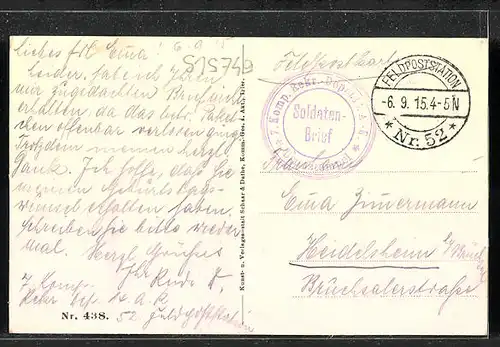 Liebes Frl Emma! 6.9.15
S1S74b
Leider habe ich Ihren
mir zugedachten Brief nicht
erhalten, da das betr. Paket-
chen offenbar verloren ging
trotzdem meinen herzl.
Dank. Ich hoffe, daß Sie
meinen Geburtstags-
wünsch erhalten haben.
Schreiben Sie bitte wieder
mal. Herzl Grüsse
Ihr Rudi K.
7. Komp.
Rekr. Dep. X. A. K.
52. Feldpoststation
Nr. 438.
Kunst- u. Verlagsanstalt Schaar & Dathe, Komm.-Ges. a. Akt., Trier.
Feldpostkarte
7. Komp. Rekr.-Dep.
Soldaten-
Brief
FELDPOSTSTATION
-6. 9. 15. 4-5 N
* Nr. 52 *
Fräulein
Emma Zimmermann
Heidelsheim b/Bruchsal
Bruchsalerstraße